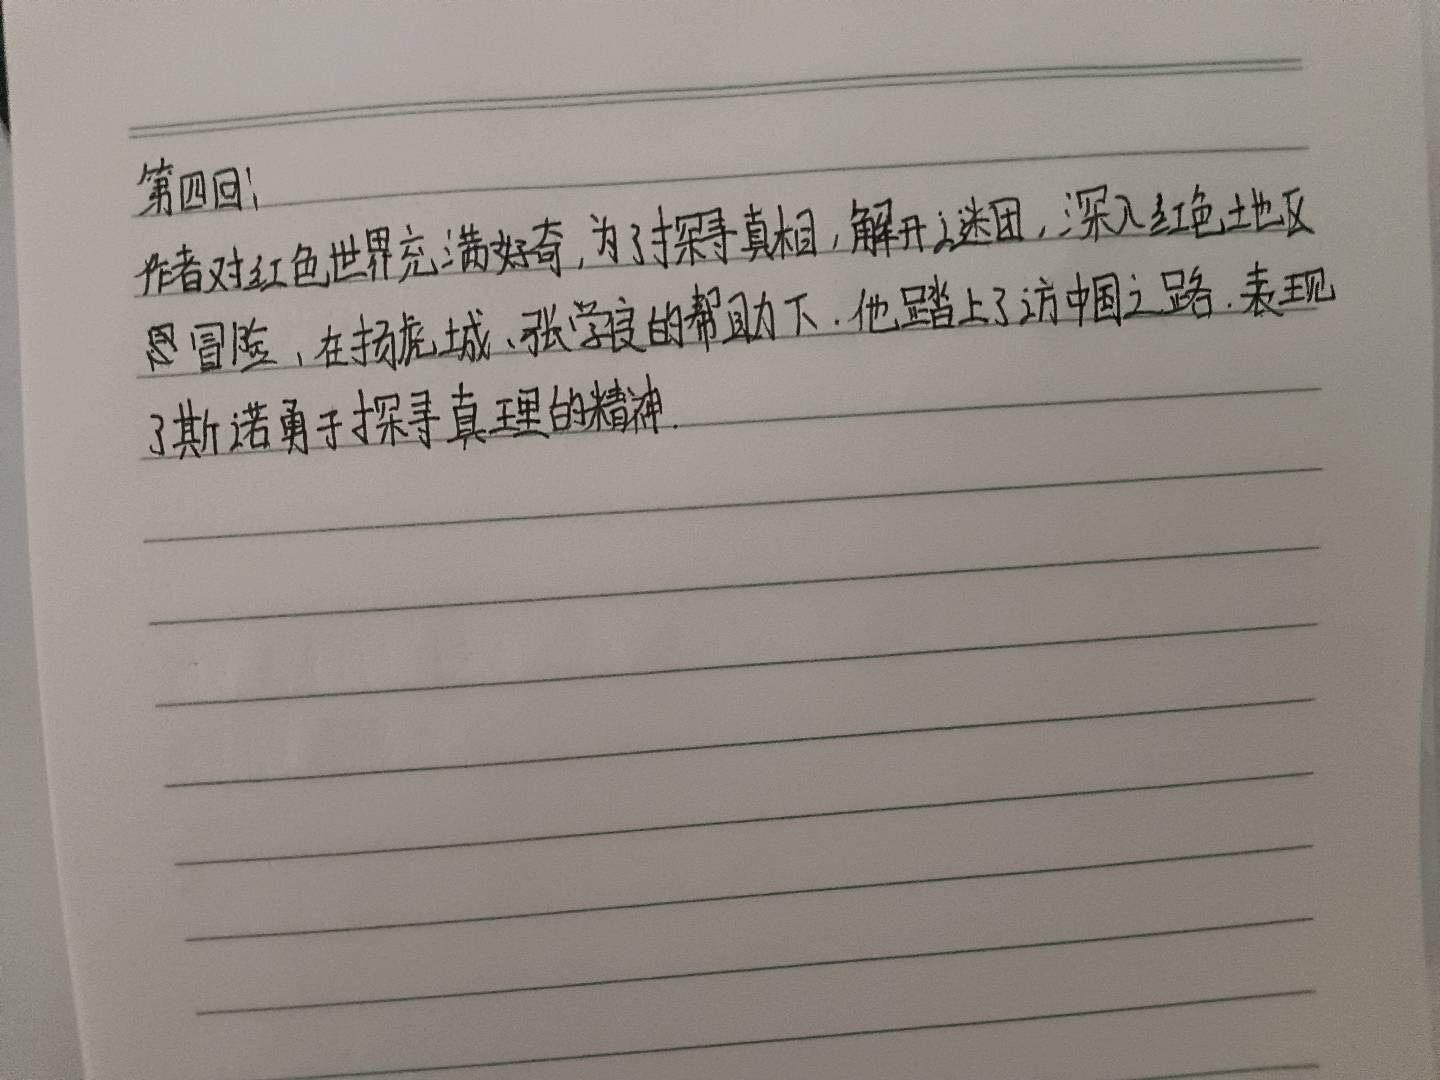 第四回:
作者对红色世界充满好奇,为了探寻真相,解开之迷团,深入红色土地区
冒险,在扬虎城、张学良的帮助下.他踏上了访中国之路.表现
了斯诺勇于探寻真理的精神.